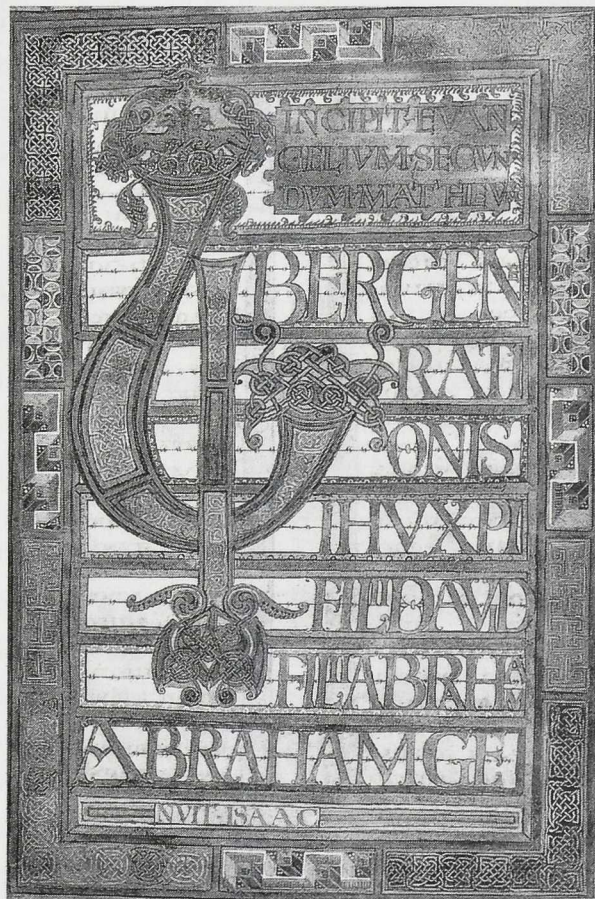 INCIPIT·EVAN
GELIVM·SECVN
DVM·MATHEV
LIBERGEN
RATI
ONIS
IHVXPI
FILII DAVID
FILII ABRHAM
ABRAHAMGE
NVIT·ISAAC